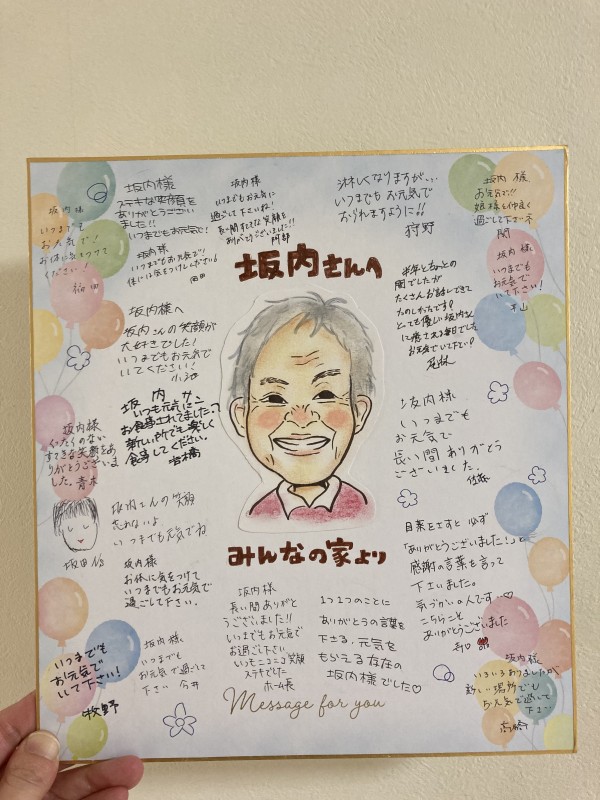 坂内様
いつまでも
お元気で！
お体に気をつけて
ください！
福田
坂内様
ステキな笑顔を
ありがとうござい
ました!!
いつまでもお元気で！
坂内様
いつまでもお元気で！
体には気をつけてくださいね
坂内様
いつまでもお元気に
過ごして下さいね！
長い間すてきな笑顔を
ありがとうございました!!
阿部
淋しくなりますが…
いつまでも お元気で
おられますように!!
狩野
坂内 様
お元気で!!
娘様と仲良く
過ごして下さいネ
関
坂内 様
いつまでも
お元気で
いて下さい！
平山
坂内さんへ
半年ちょっとの
間でしたが
たくさんお話しできて
たのしかったです！
とっても優しい坂内さん
に癒される毎日でした
お元気でいて下さい！
尾林
坂内様へ
坂内さんの笑顔が
大好きでした！
いつまでもお元気で
いてください！
小池
坂内様
いつも元気に
お食事されてましたって
新しい所でも楽しく
食事してください。
岩橋
坂内様
くったくのない
すてきな笑顔をあ
りがとうございま
した。青木
坂内さんの笑顔
忘れないよ
いつまでも元気でね
坂田
坂内様
お体に気をつけて
いつまでもお元気で
過ごして下さい。
坂内様
いつまでも
お元気で
長い間ありがとう
ございました。
佐藤
目薬をさすと必ず
「ありがとうございました！」と
感謝の言葉を言って
下さいました。
気づかいの人です…♡
こちらこそ
ありがとうございました
みんなの家より
坂内様
長い間ありがと
うございました!!
いつまでもお元気で
お過ご下さい
いつもニコニコ笑顔
ステキでした
ホーム長
1つ1つのことに
ありがとうの言葉を
下さる、元気を
もらえる存在の
坂内様でした♡
いつまでも
お元気で
いて下さい！
牧野
坂内様
いつまでも
お元気で過ごして
下さい 今井
坂内様
いろいろありましたが
新しい場所でも
お元気で過して
下さい
高橋
Message for you